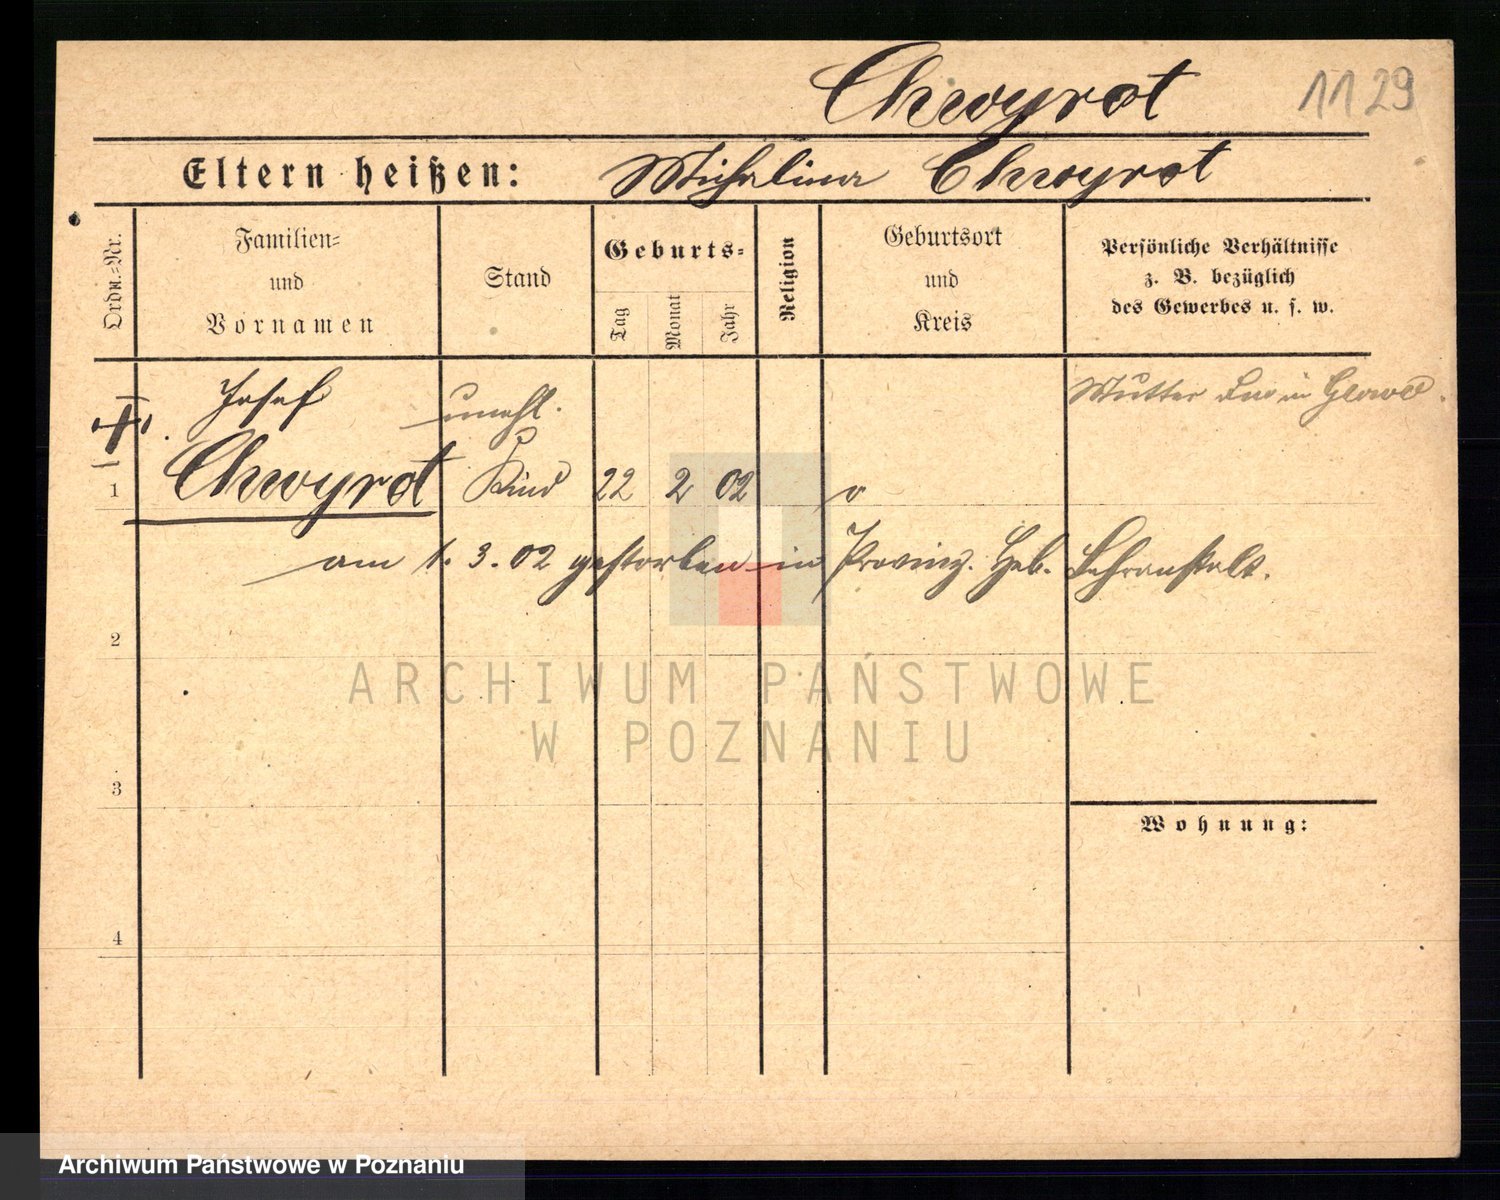 Chwyrot 1129
Eltern heißen: Michalina Chwyrot
Ordn.=Nr.
Familien=
und
Vornamen
Stand
Geburts=
Tag
Monat
Jahr
Religion
Geburtsort
und
Kreis
Persönliche Verhältnisse
z. B. bezüglich
des Gewerbes u. s. w.
Josef unehl. Mutter in
1 Chwyrot Kind 22 2 02
am 1. 3. 02 gestorben in Provinz. Heb. Lehranstalt.
2
ARCHIWUM PAŃSTWOWE
W POZNANIU
3
Wohnung:
4
Archiwum Państwowe w Poznaniu